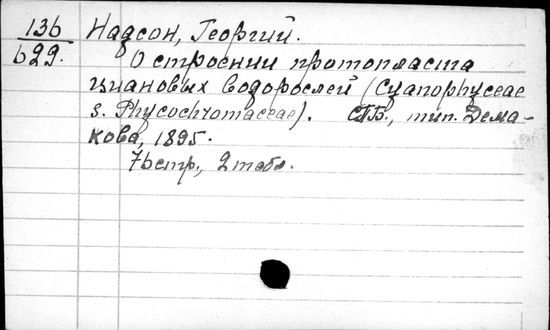 136 Надсон, Георгий.
629.
О строении протопласта
циановых водорослей (Cyanophyceae
s. Phycochromaceae). СПБ., тип. Дема-
кова, 1895.
76 стр., 2 табл.